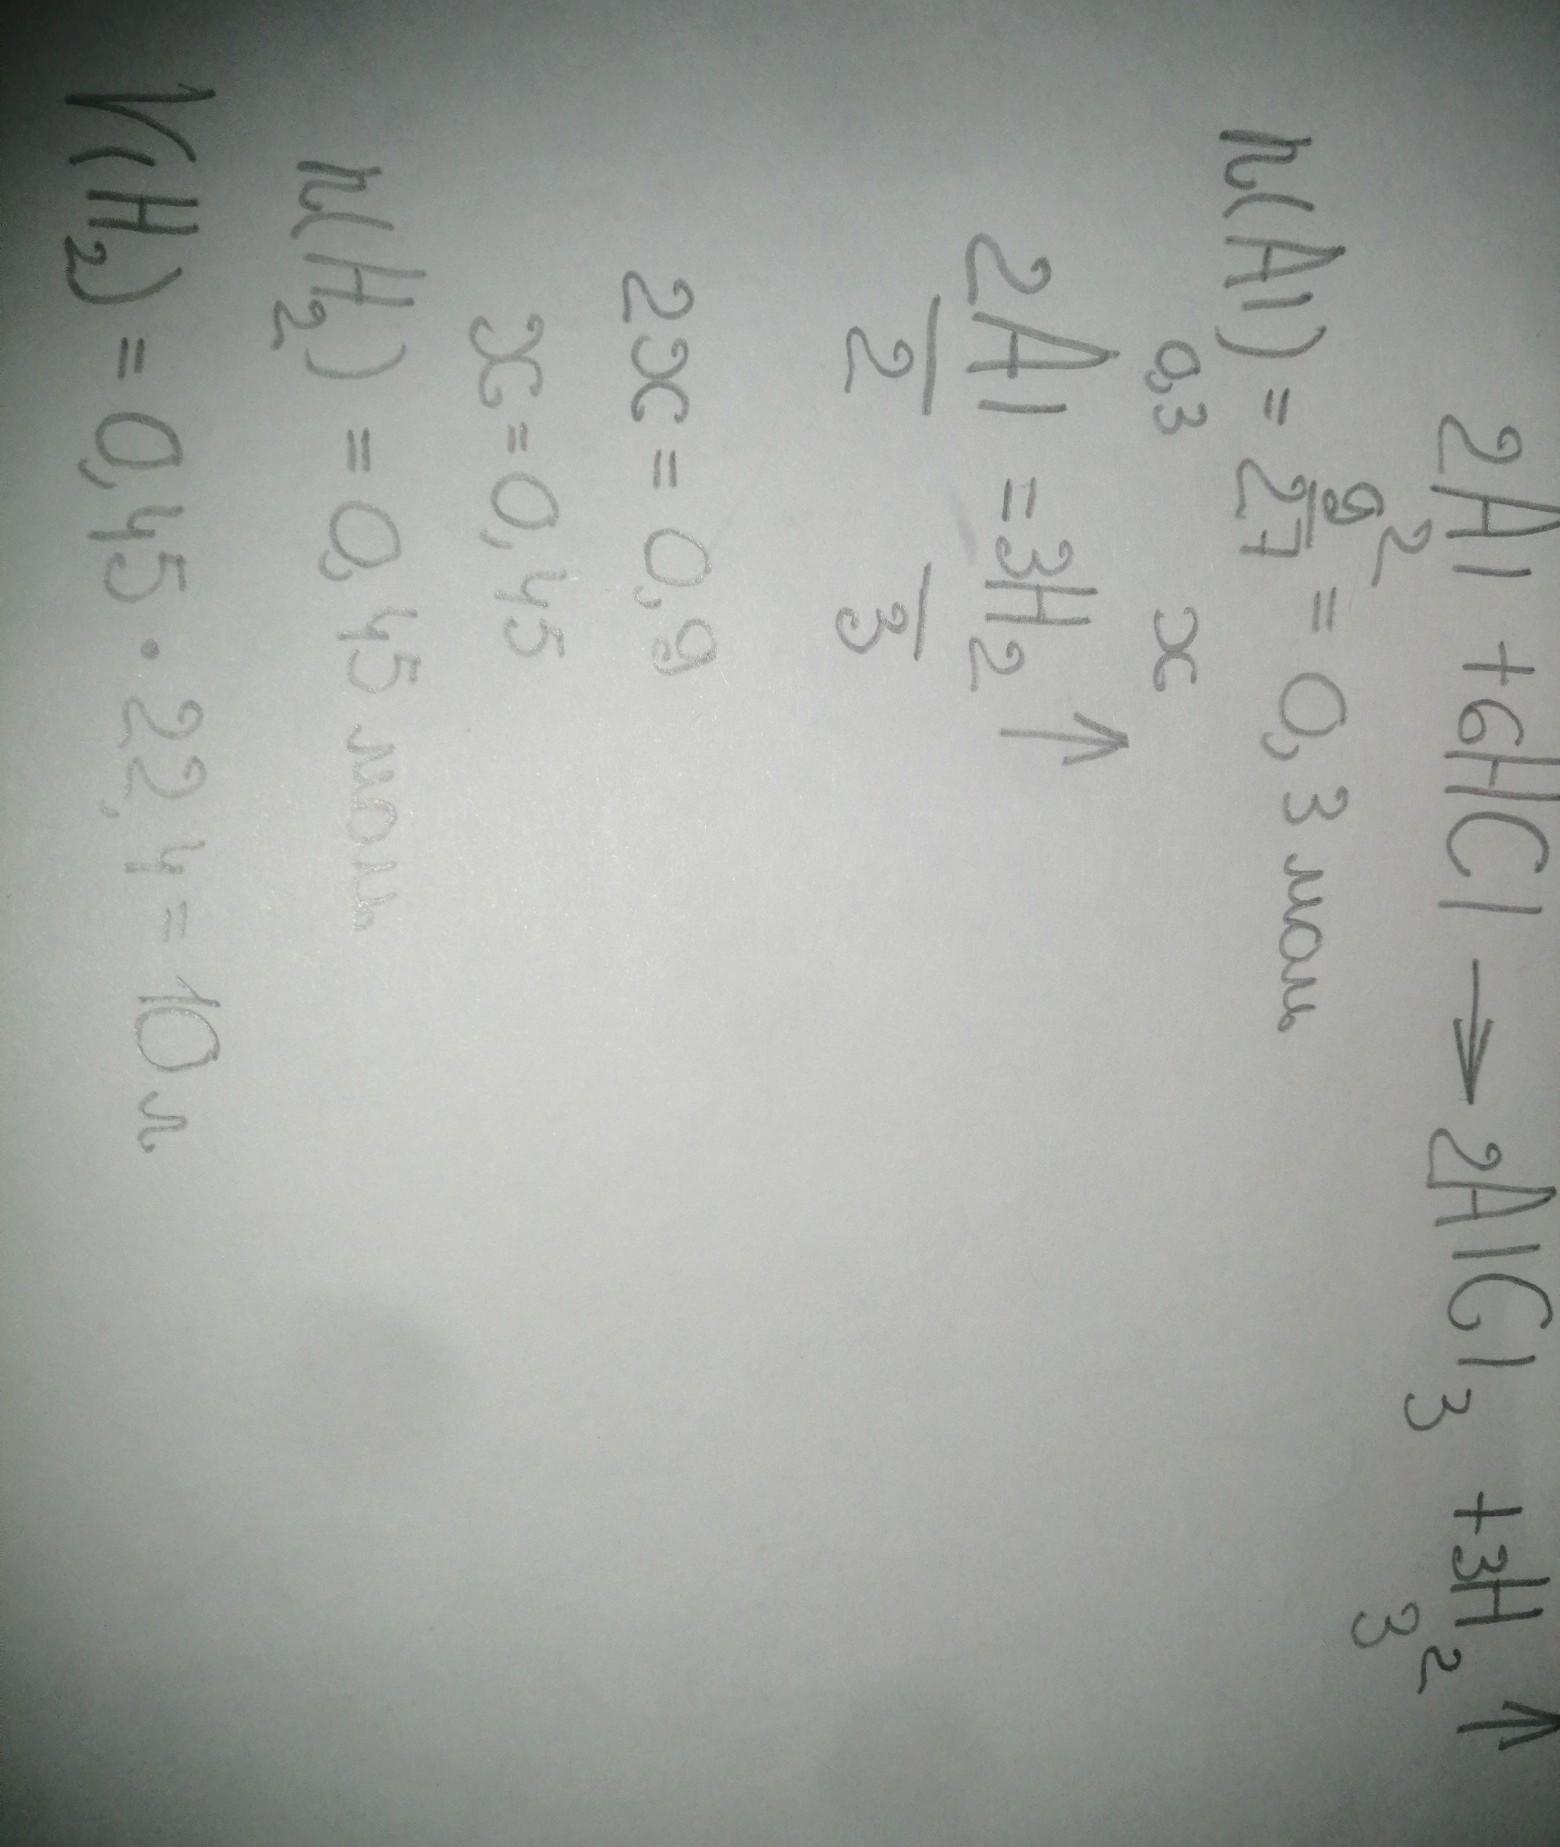 2Al + 6HCl → 2AlCl₃ + 3H₂↑
2 3
n(Al) = 9/27 = 0,3 моль
0,3 x
2Al = 3H₂↑
2 3
2x = 0,9
x = 0,45
n(H₂) = 0,45 моль
V(H₂) = 0,45 · 22,4 = 10 л